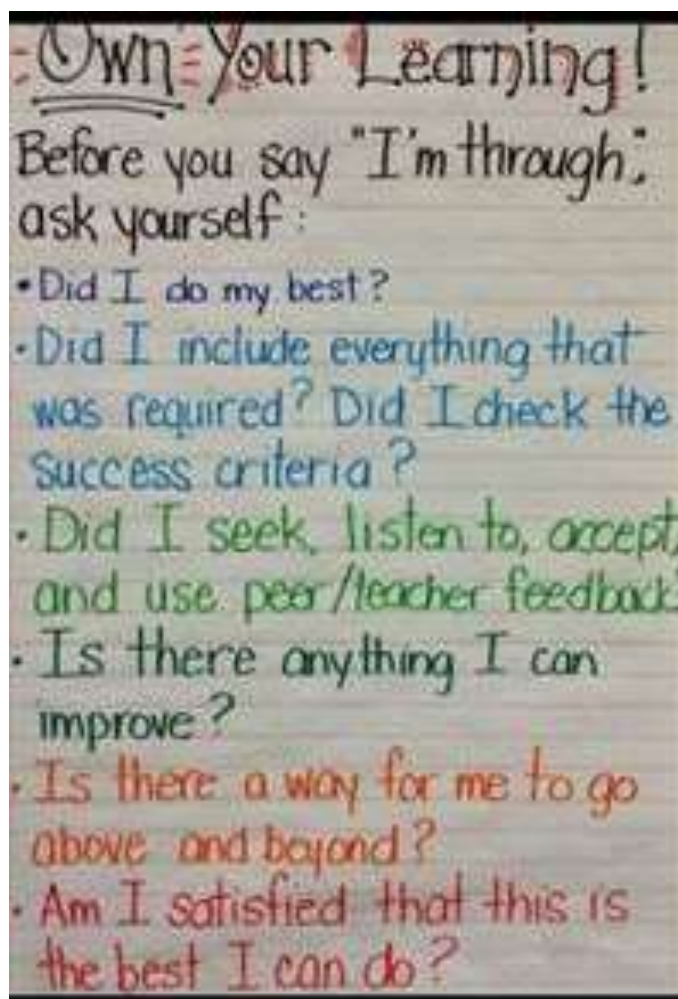 Own Your Learning!
Before you say "I'm through,"
ask yourself:
• Did I do my best?
• Did I include everything that
was required? Did I check the
success criteria?
• Did I seek, listen to, accept,
and use peer/teacher feedback?
• Is there anything I can
improve?
• Is there a way for me to go
above and beyond?
• Am I satisfied that this is
the best I can do?